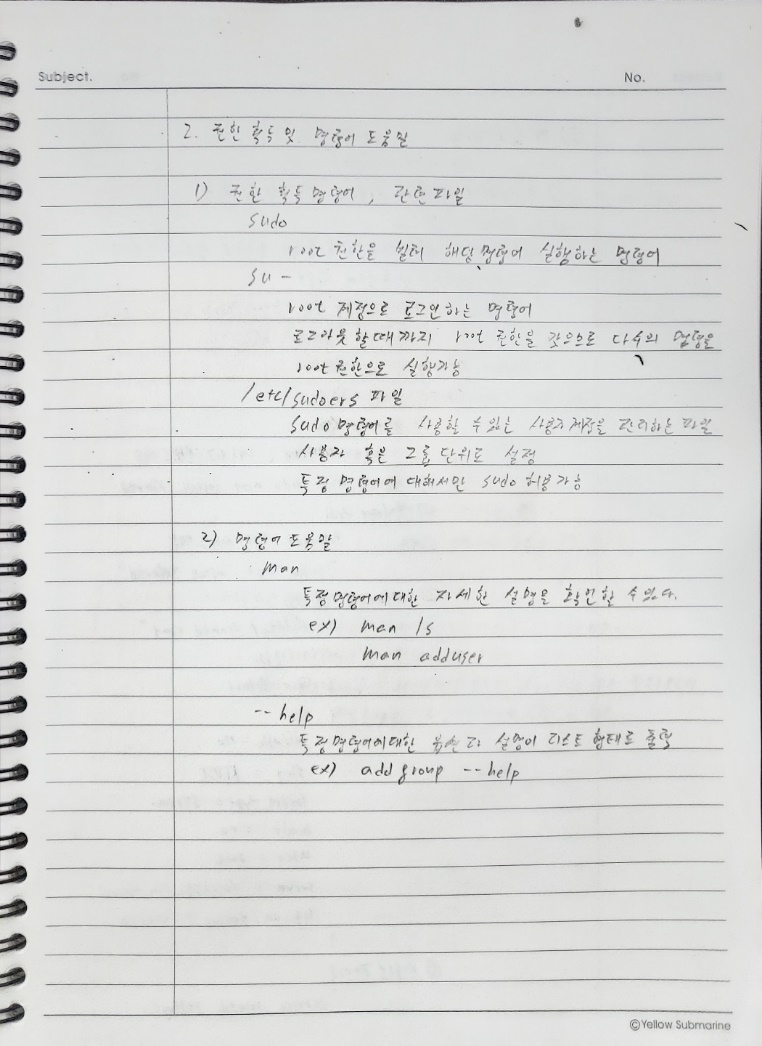 Subject.
No.
2. 권한 획득 및 명령어 도움말
1) 권한 획득 명령어, 관련 파일
sudo
root 권한을 빌려 해당 명령어 실행하는 명령어
su -
root 계정으로 로그인하는 명령어
로그아웃 할때까지 root 권한을 갖으므로 다수의 명령을
root 권한으로 실행가능
/etc/sudoers 파일
sudo 명령어를 사용할 수 있는 사용자 계정을 관리하는 파일
사용자 혹은 그룹 단위로 설정
특정 명령어에 대해서만 sudo 허용 가능
2) 명령어 도움말
man
특정 명령어에 대한 자세한 설명을 확인할 수 있다.
ex) man ls
man adduser
--help
특정 명령어에 대한 설명이 리스트 형태로 출력
ex) addgroup --help
©Yellow Submarine